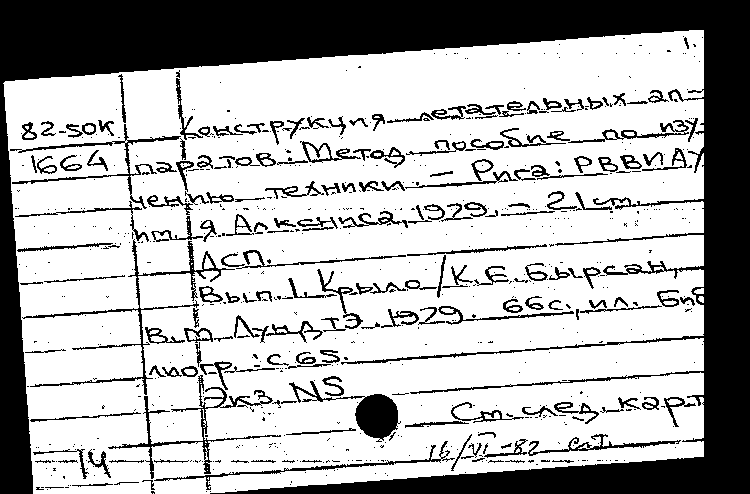 1.
82-50К Конструкция летательных ап-
1664 паратов: Метод. пособие по изу-
чению техники. – Рига: РВВИАУ
им. Я. Алксниса, 1979. – 21 см.
ДСП.
Вып. 1. Крыло / К. Е. Бырсан,
В. М. 1979. 66с., ил. Биб
лиогр.: с 65.
Экз. N5
См. след. карт
14 16/VI-82